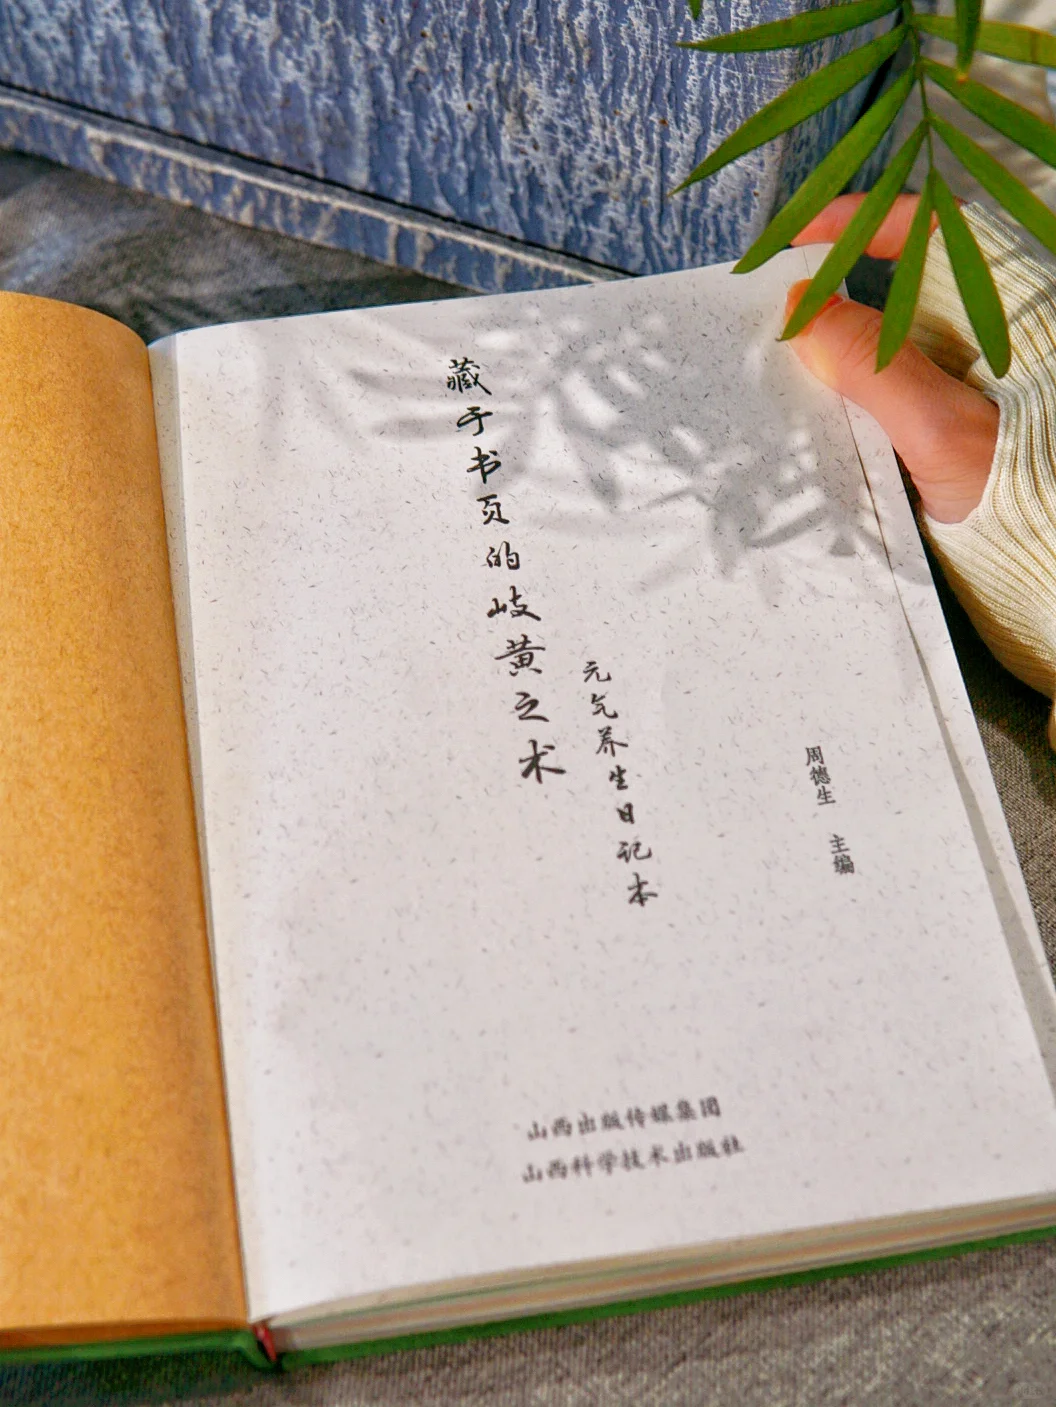 藏于书页的岐黄之术
元气养生日记本
周德生 主编
山西出版传媒集团
山西科学技术出版社